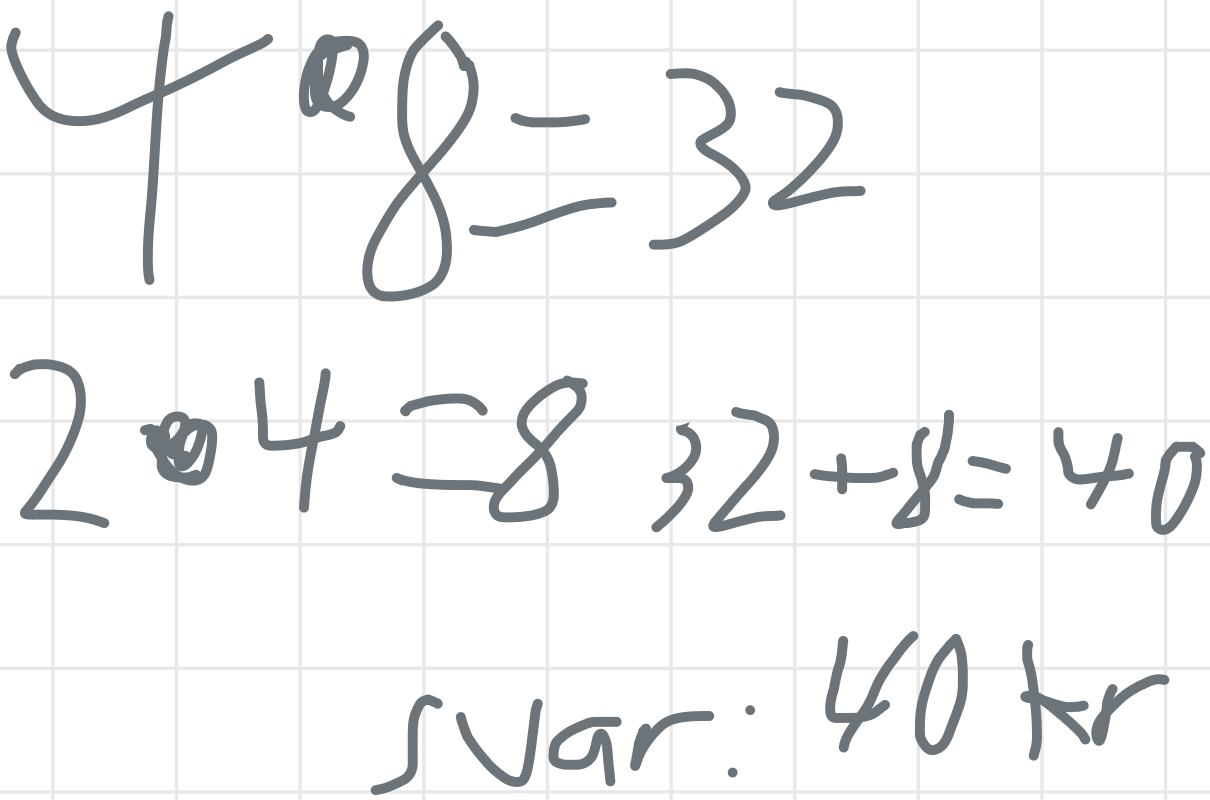 4 • 8 = 32
2 • 4 = 8 32 + 8 = 40
svar: 40 kr